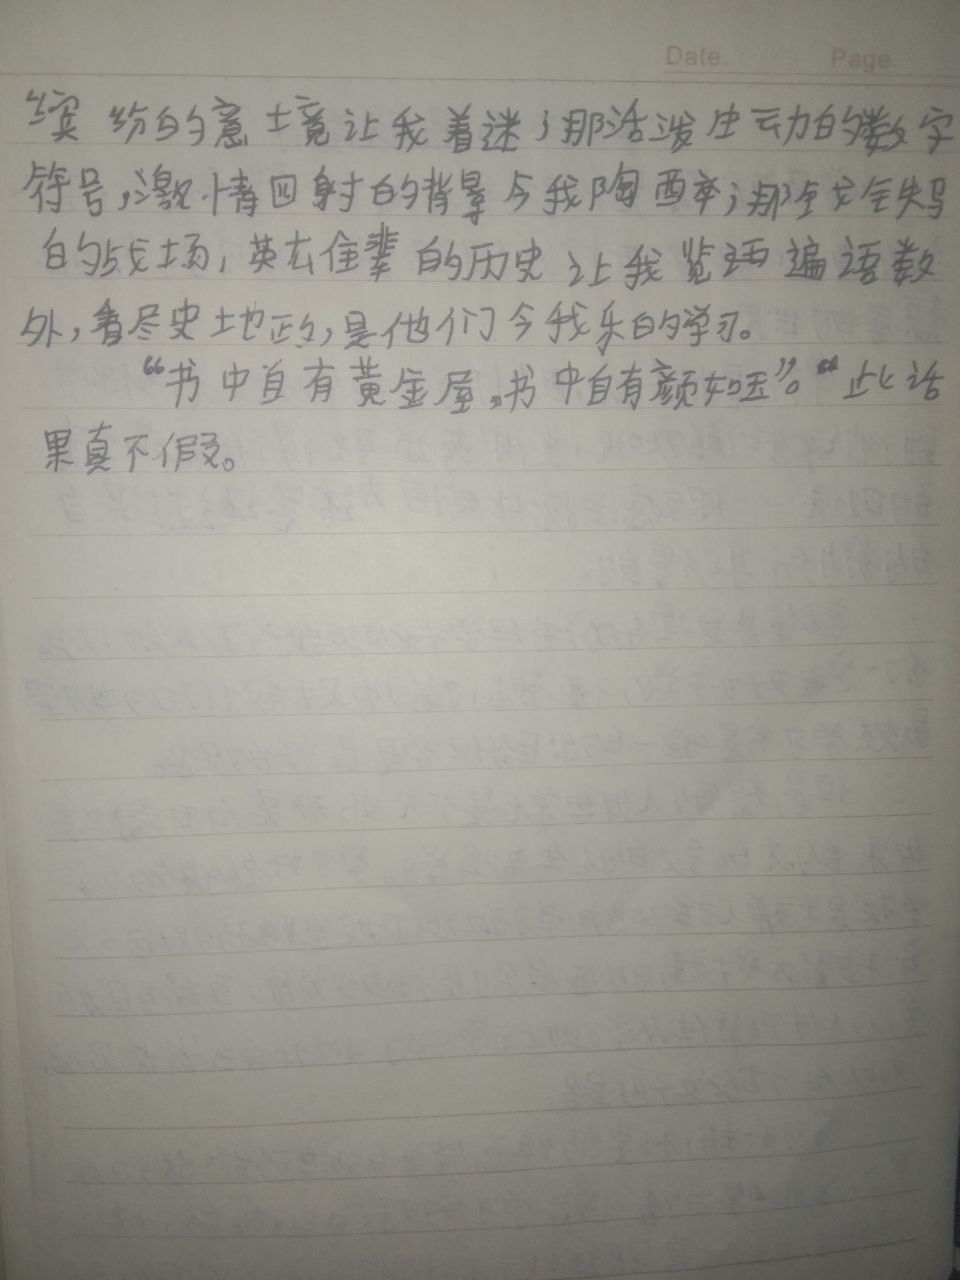 Date. Page
缤纷的意境让我着迷；那活泼生动的数字
符号，激情四射的背景令我陶醉；那金戈铁马
的战场，英雄辈的历史让我览遍语数
外，看尽史地政，是他们令我乐的学习。
“书中自有黄金屋，书中自有颜如玉”。“此话
果真不假。